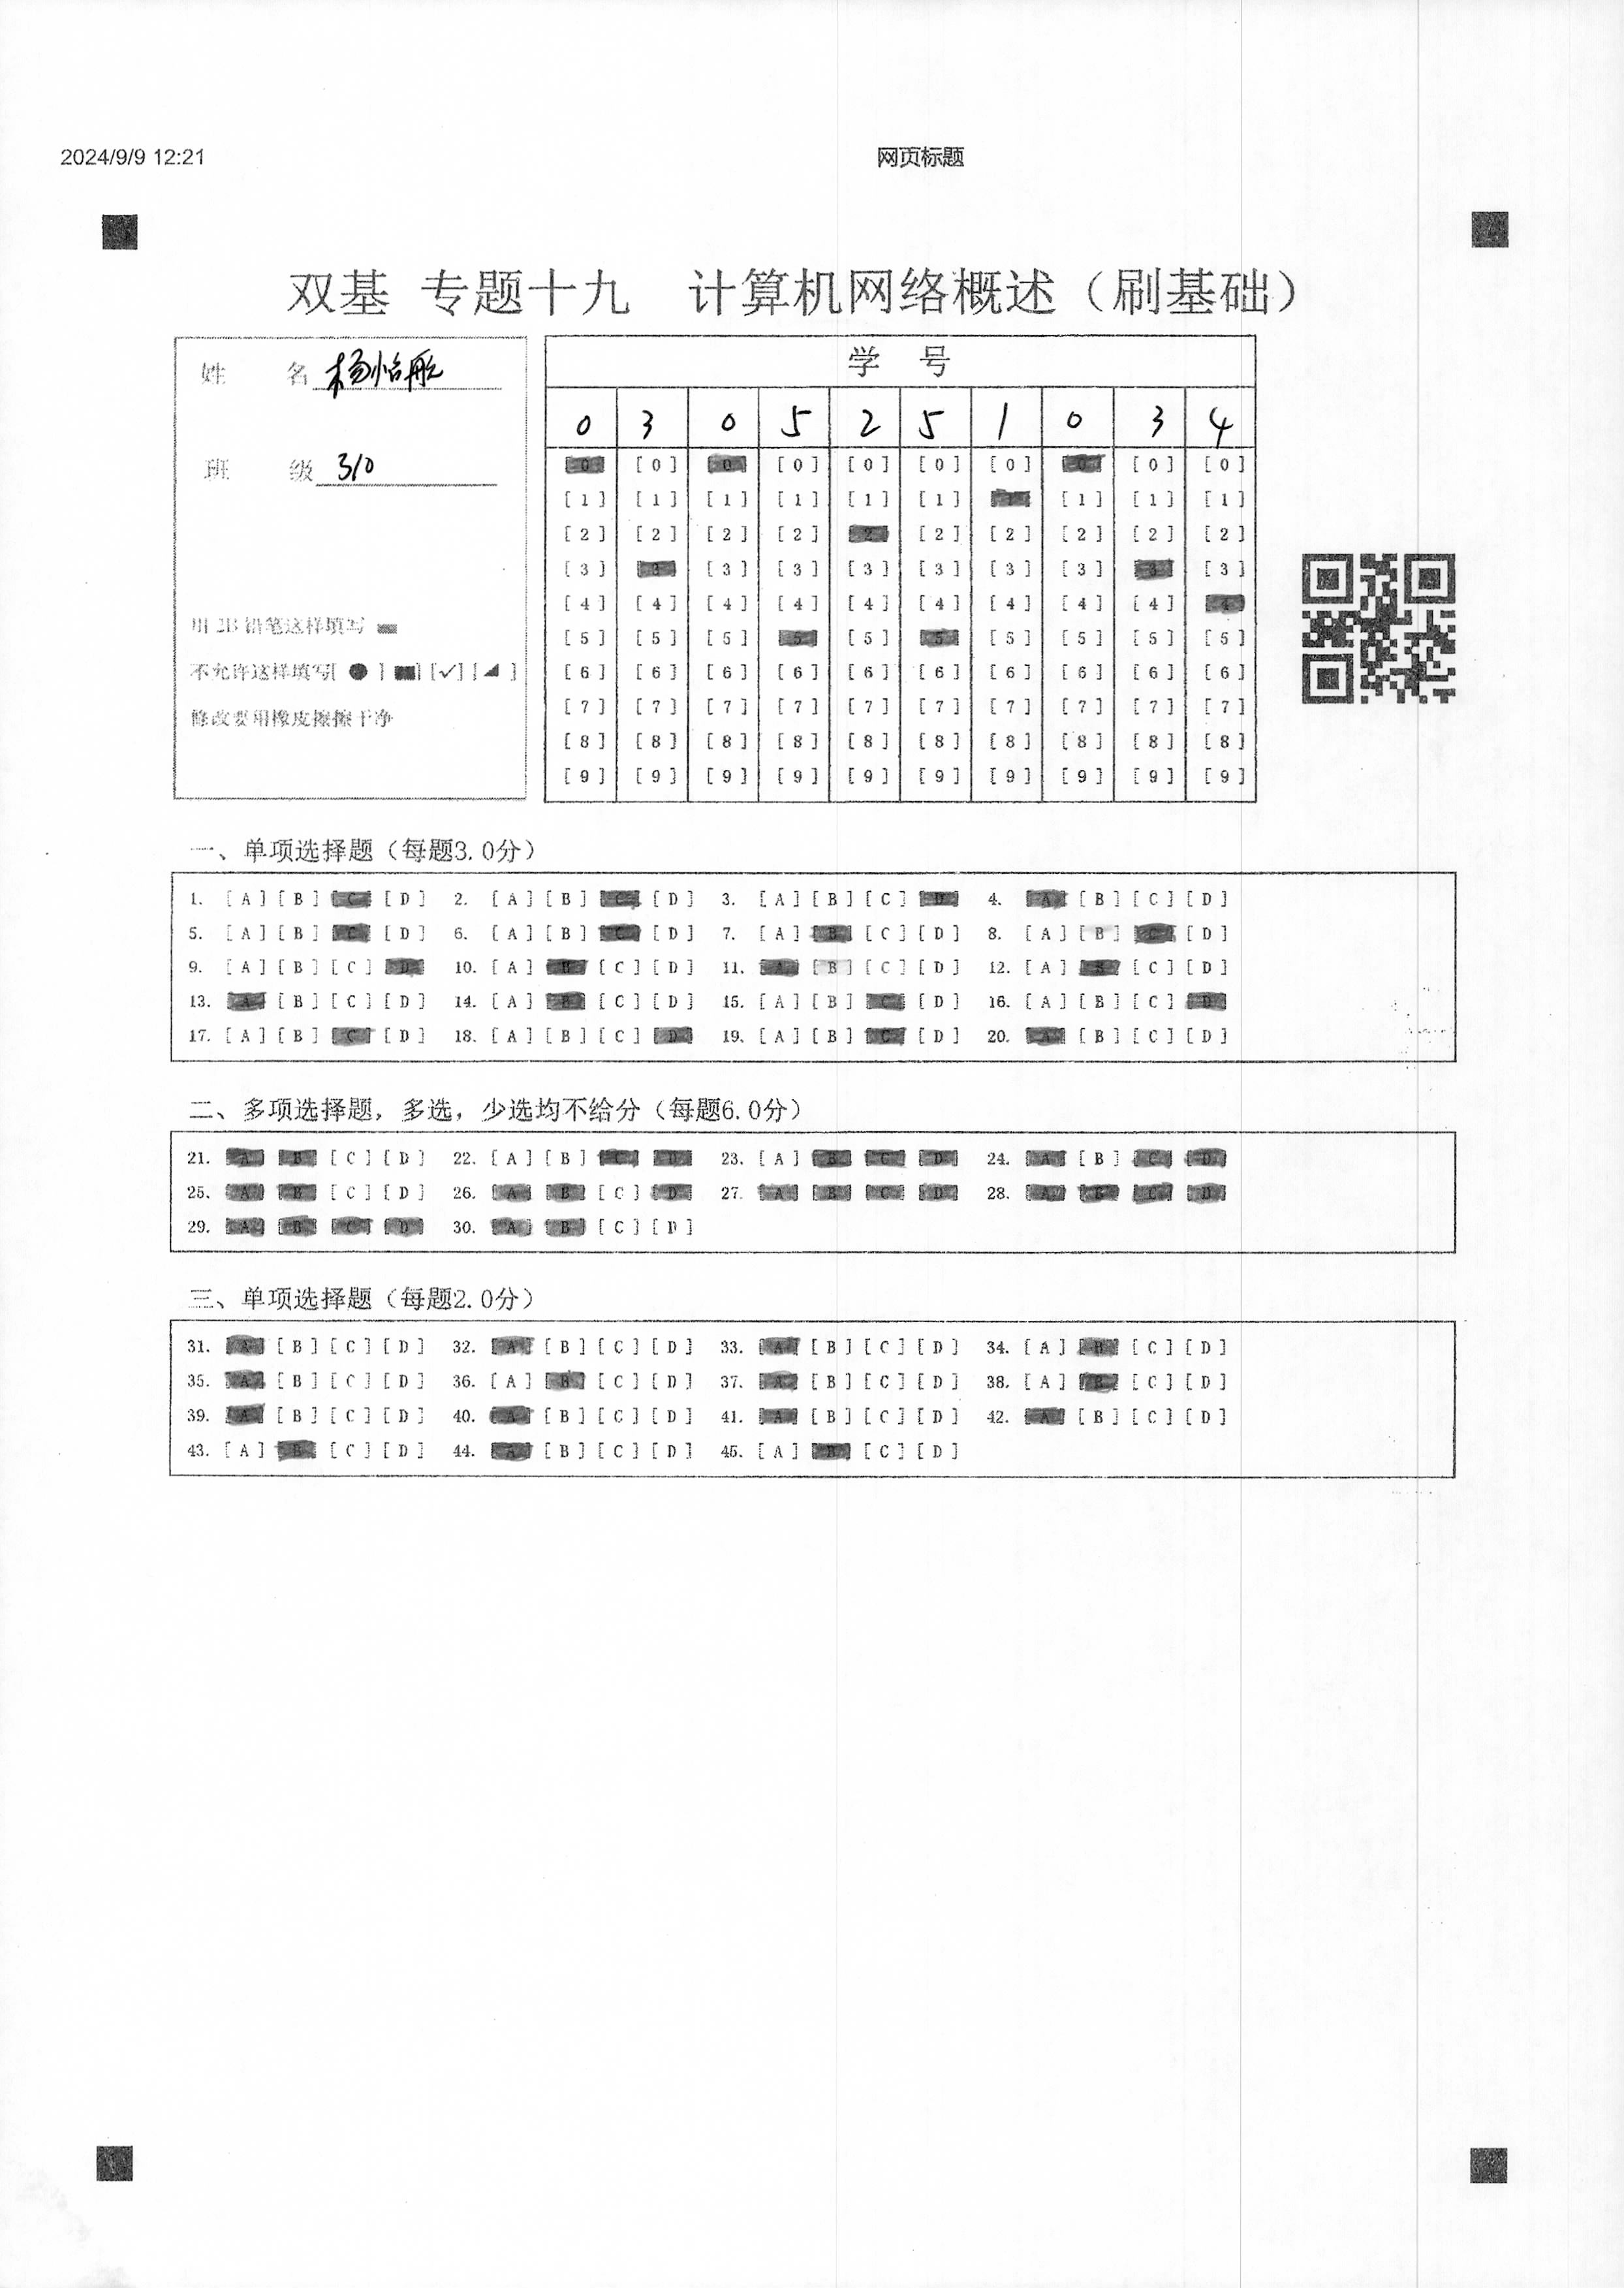 2024/9/9 12:21 网页标题
双基 专题十九 计算机网络概述（刷基础）
姓 名 杨怡彤
班 级 310
用 2B 铅笔这样填写
不允许这样填写[ ● ] [■] [✓] [◢ ]
修改要用橡皮擦擦干净
学 号
0 3 0 5 2 5 1 0 3 4
[0] [0] [0] [0] [0] [0] [0] [0] [0] [0]
[1] [1] [1] [1] [1] [1] [1] [1] [1] [1]
[2] [2] [2] [2] [2] [2] [2] [2] [2] [2]
[3] [3] [3] [3] [3] [3] [3] [3] [3] [3]
[4] [4] [4] [4] [4] [4] [4] [4] [4] [4]
[5] [5] [5] [5] [5] [5] [5] [5] [5] [5]
[6] [6] [6] [6] [6] [6] [6] [6] [6] [6]
[7] [7] [7] [7] [7] [7] [7] [7] [7] [7]
[8] [8] [8] [8] [8] [8] [8] [8] [8] [8]
[9] [9] [9] [9] [9] [9] [9] [9] [9] [9]
一、单项选择题（每题3.0分）
1. [A] [B] [C] [D] 2. [A] [B] [C] [D] 3. [A] [B] [C] [D] 4. [A] [B] [C] [D]
5. [A] [B] [C] [D] 6. [A] [B] [C] [D] 7. [A] [B] [C] [D] 8. [A] [B] [C] [D]
9. [A] [B] [C] [D] 10. [A] [B] [C] [D] 11. [A] [B] [C] [D] 12. [A] [B] [C] [D]
13. [A] [B] [C] [D] 14. [A] [B] [C] [D] 15. [A] [B] [C] [D] 16. [A] [B] [C] [D]
17. [A] [B] [C] [D] 18. [A] [B] [C] [D] 19. [A] [B] [C] [D] 20. [A] [B] [C] [D]
二、多项选择题，多选，少选均不给分（每题6.0分）
21. [A] [B] [C] [D] 22. [A] [B] [C] [D] 23. [A] [B] [C] [D] 24. [A] [B] [C] [D]
25. [A] [B] [C] [D] 26. [A] [B] [C] [D] 27. [A] [B] [C] [D] 28. [A] [B] [C] [D]
29. [A] [B] [C] [D] 30. [A] [B] [C] [D]
三、单项选择题（每题2.0分）
31. [A] [B] [C] [D] 32. [A] [B] [C] [D] 33. [A] [B] [C] [D] 34. [A] [B] [C] [D]
35. [A] [B] [C] [D] 36. [A] [B] [C] [D] 37. [A] [B] [C] [D] 38. [A] [B] [C] [D]
39. [A] [B] [C] [D] 40. [A] [B] [C] [D] 41. [A] [B] [C] [D] 42. [A] [B] [C] [D]
43. [A] [B] [C] [D] 44. [A] [B] [C] [D] 45. [A] [B] [C] [D]